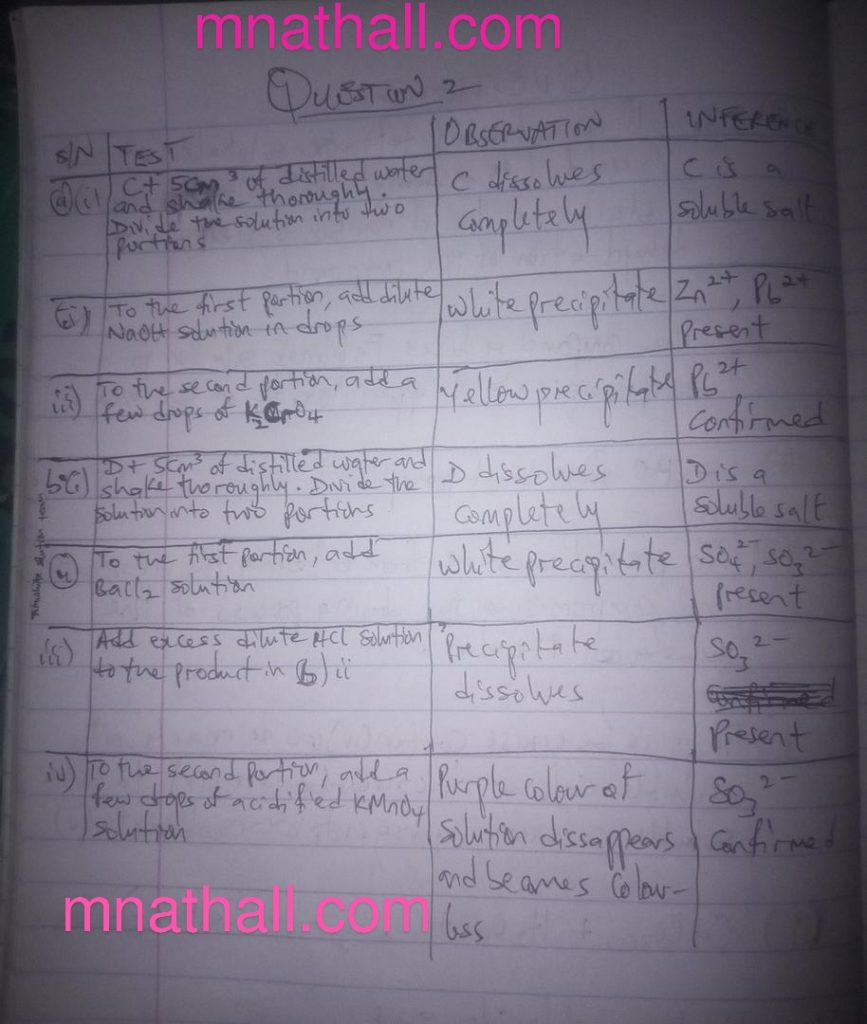 mnathall.com
QUESTION 2
S/N TEST OBSERVATION INFERENCE
a(i) C + 5cm³ of distilled water
and shake thoroughly.
Divide the solution into two
portions
C dissolves
completely
C is a
soluble salt
ii) To the first portion, add dilute
NaOH solution in drops
White precipitate
Zn²⁺, Pb²⁺
present
iii) To the second portion, add a
few drops of K₂CrO₄
Yellow precipitate
Pb²⁺
Confirmed
b(i) D + 5cm³ of distilled water and
shake thoroughly. Divide the
solution into two portions
D dissolves
completely
D is a
soluble salt
ii To the first portion, add
BaCl₂ solution
White precipitate
SO₄²⁻, SO₃²⁻
present
iii) Add excess dilute HCl solution
to the product in (b) ii
Precipitate
dissolves
SO₃²⁻
Present
iv) To the second portion, add a
few drops of acidified KMnO₄
solution
Purple colour of
solution dissappears
and becames Colour-
less
SO₃²⁻
Confirmed
mnathall.com